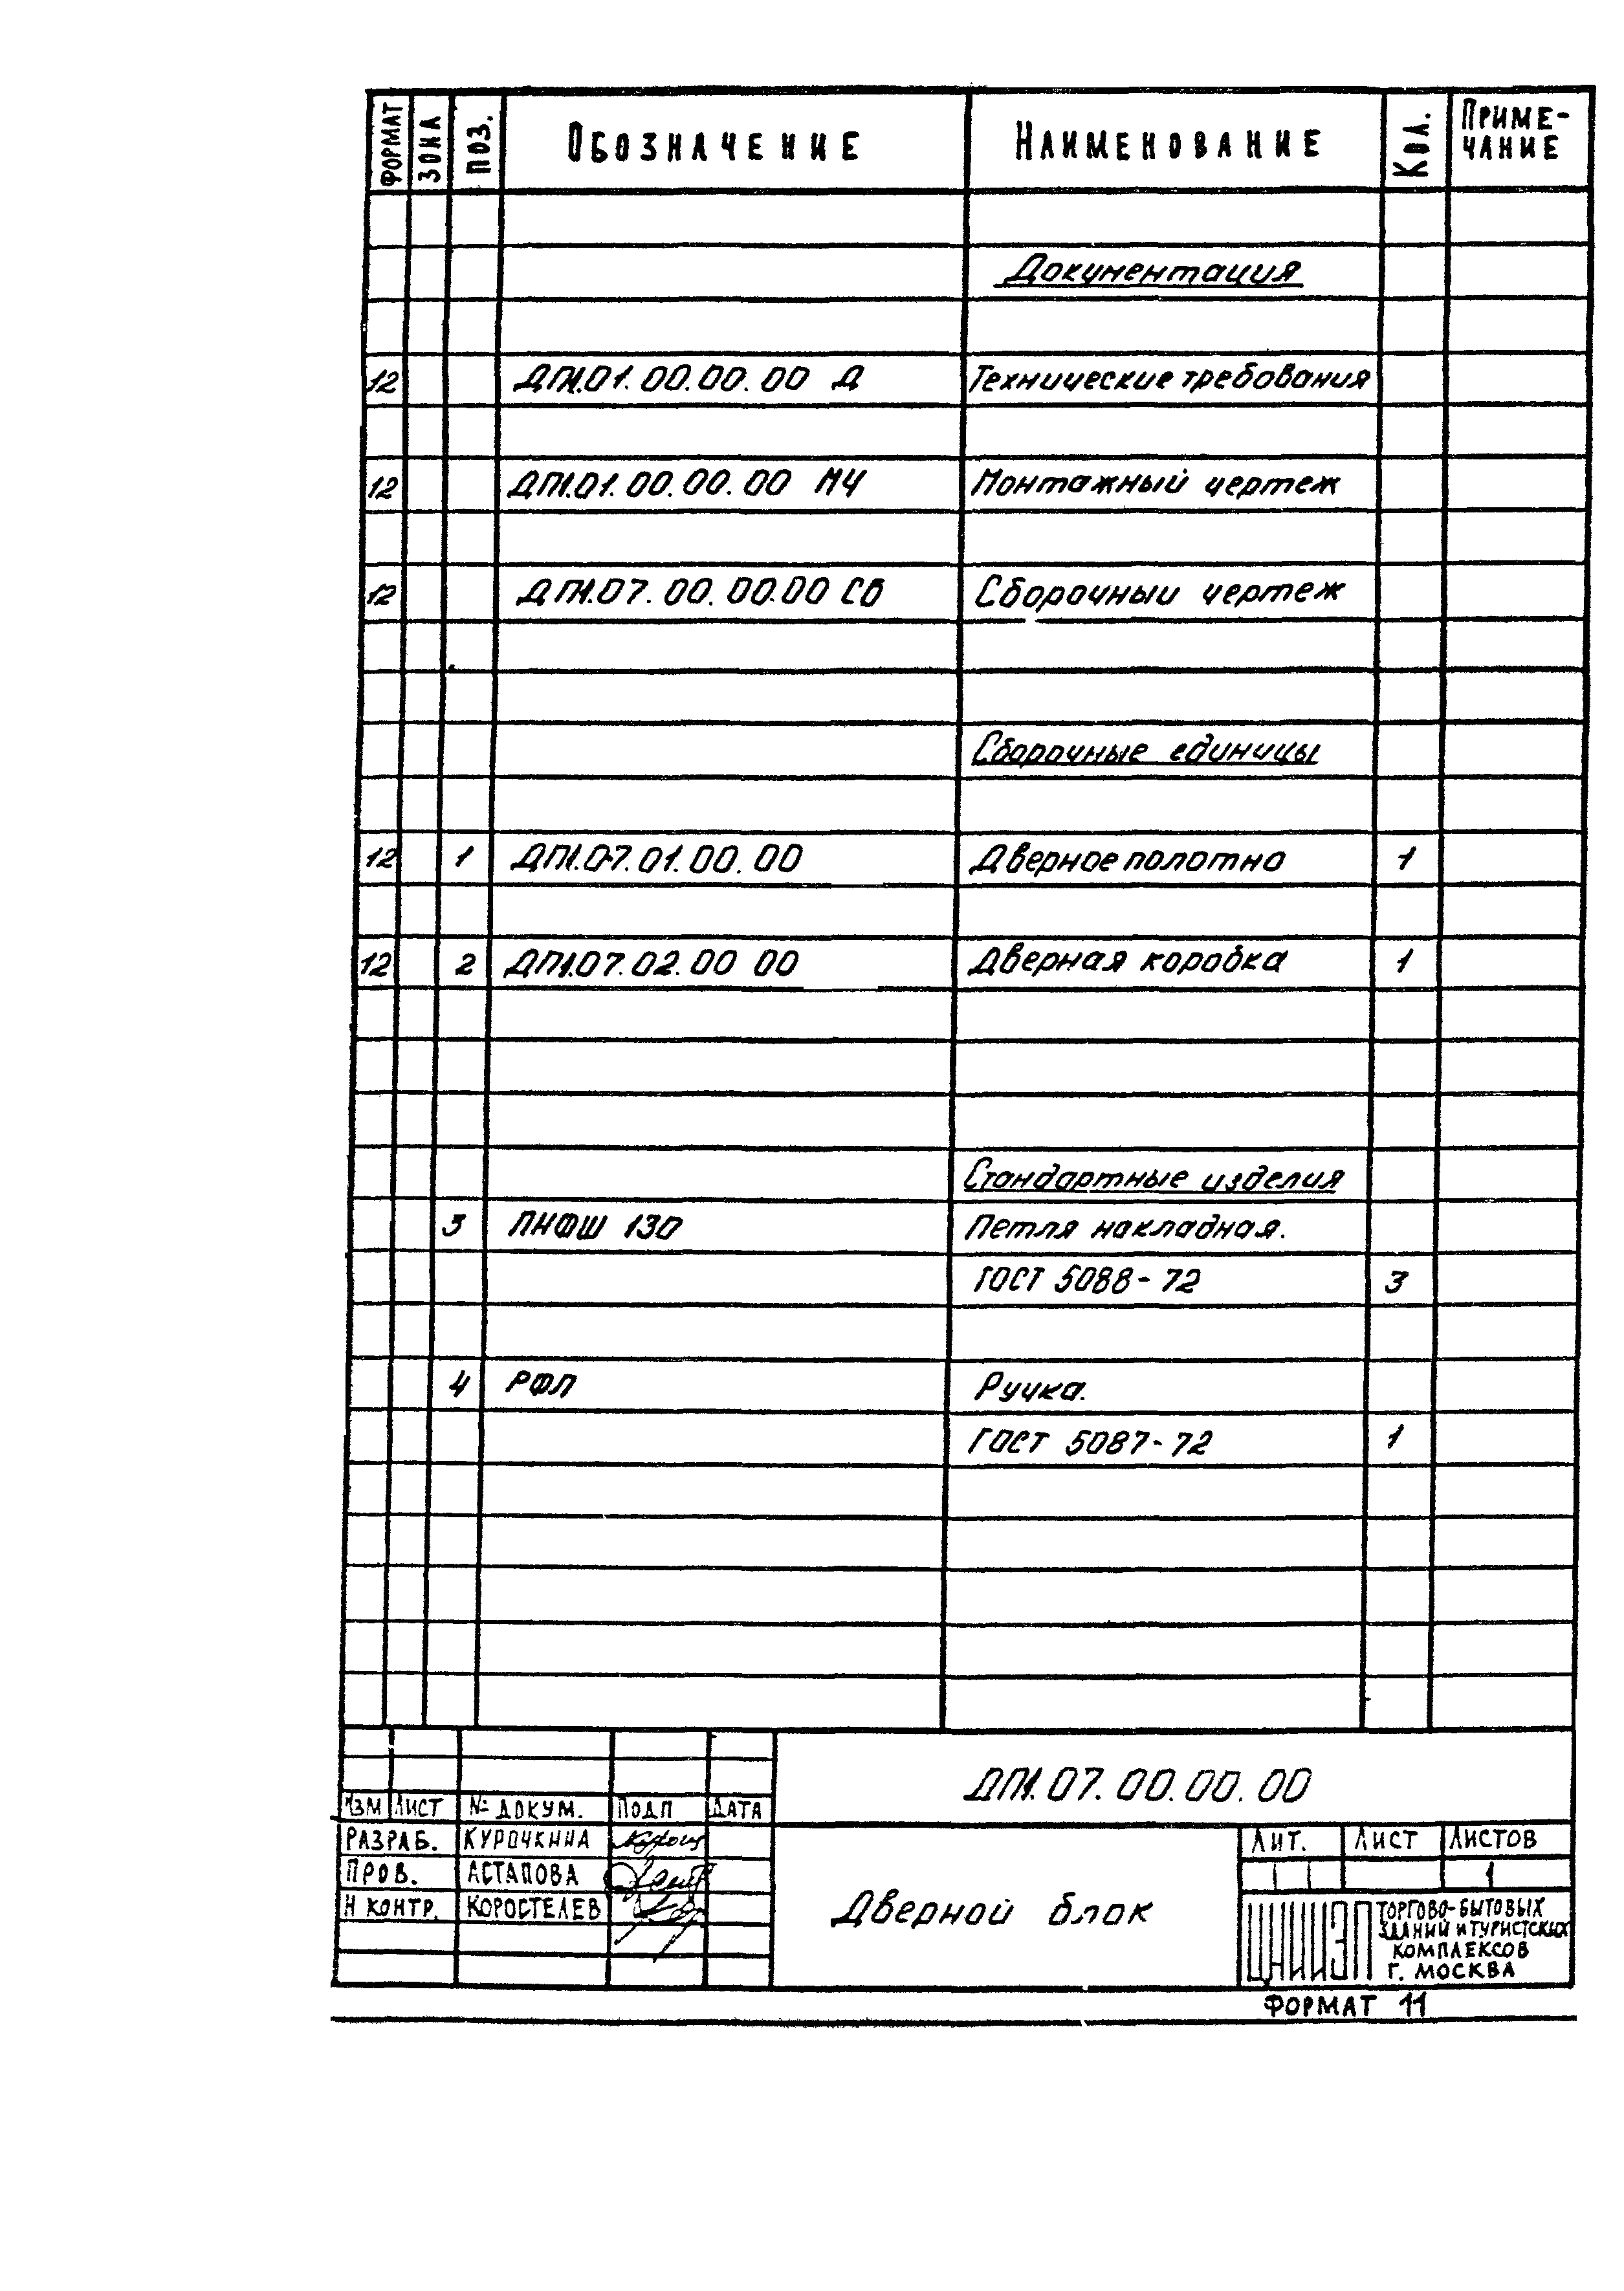 ФОРМАТ ЗОНА ПОЗ. ОБОЗНАЧЕНИЕ НАИМЕНОВАНИЕ КОЛ. ПРИМЕ-
ЧАНИЕ
Документация
12 ДП1.01.00.00.00 Д Технические требования
12 ДП1.01.00.00.00 МЧ Монтажный чертеж
12 ДП1.07.00.00.00 СБ Сборочный чертеж
Сборочные единицы
12 1 ДП1.07.01.00.00 Дверное полотно 1
12 2 ДП1.07.02.00 00 Дверная коробка 1
Стандартные изделия
3 ПНФШ 130 Петля накладная.
ГОСТ 5088-72 3
4 РФЛ Ручка.
ГОСТ 5087-72 1
ДП1.07.00.00.00
ИЗМ ЛИСТ № ДОКУМ. ПОДП ДАТА
РАЗРАБ. КУРОЧКИНА
ПРОВ. АСТАПОВА
Н КОНТР. КОРОСТЕЛЕВ
Дверной блок
ЛИТ. ЛИСТ ЛИСТОВ
1
ЦНИИЭП ТОРГОВО-БЫТОВЫХ
ЗДАНИЙ И ТУРИСТСКИХ
КОМПЛЕКСОВ
Г. МОСКВА
ФОРМАТ 11